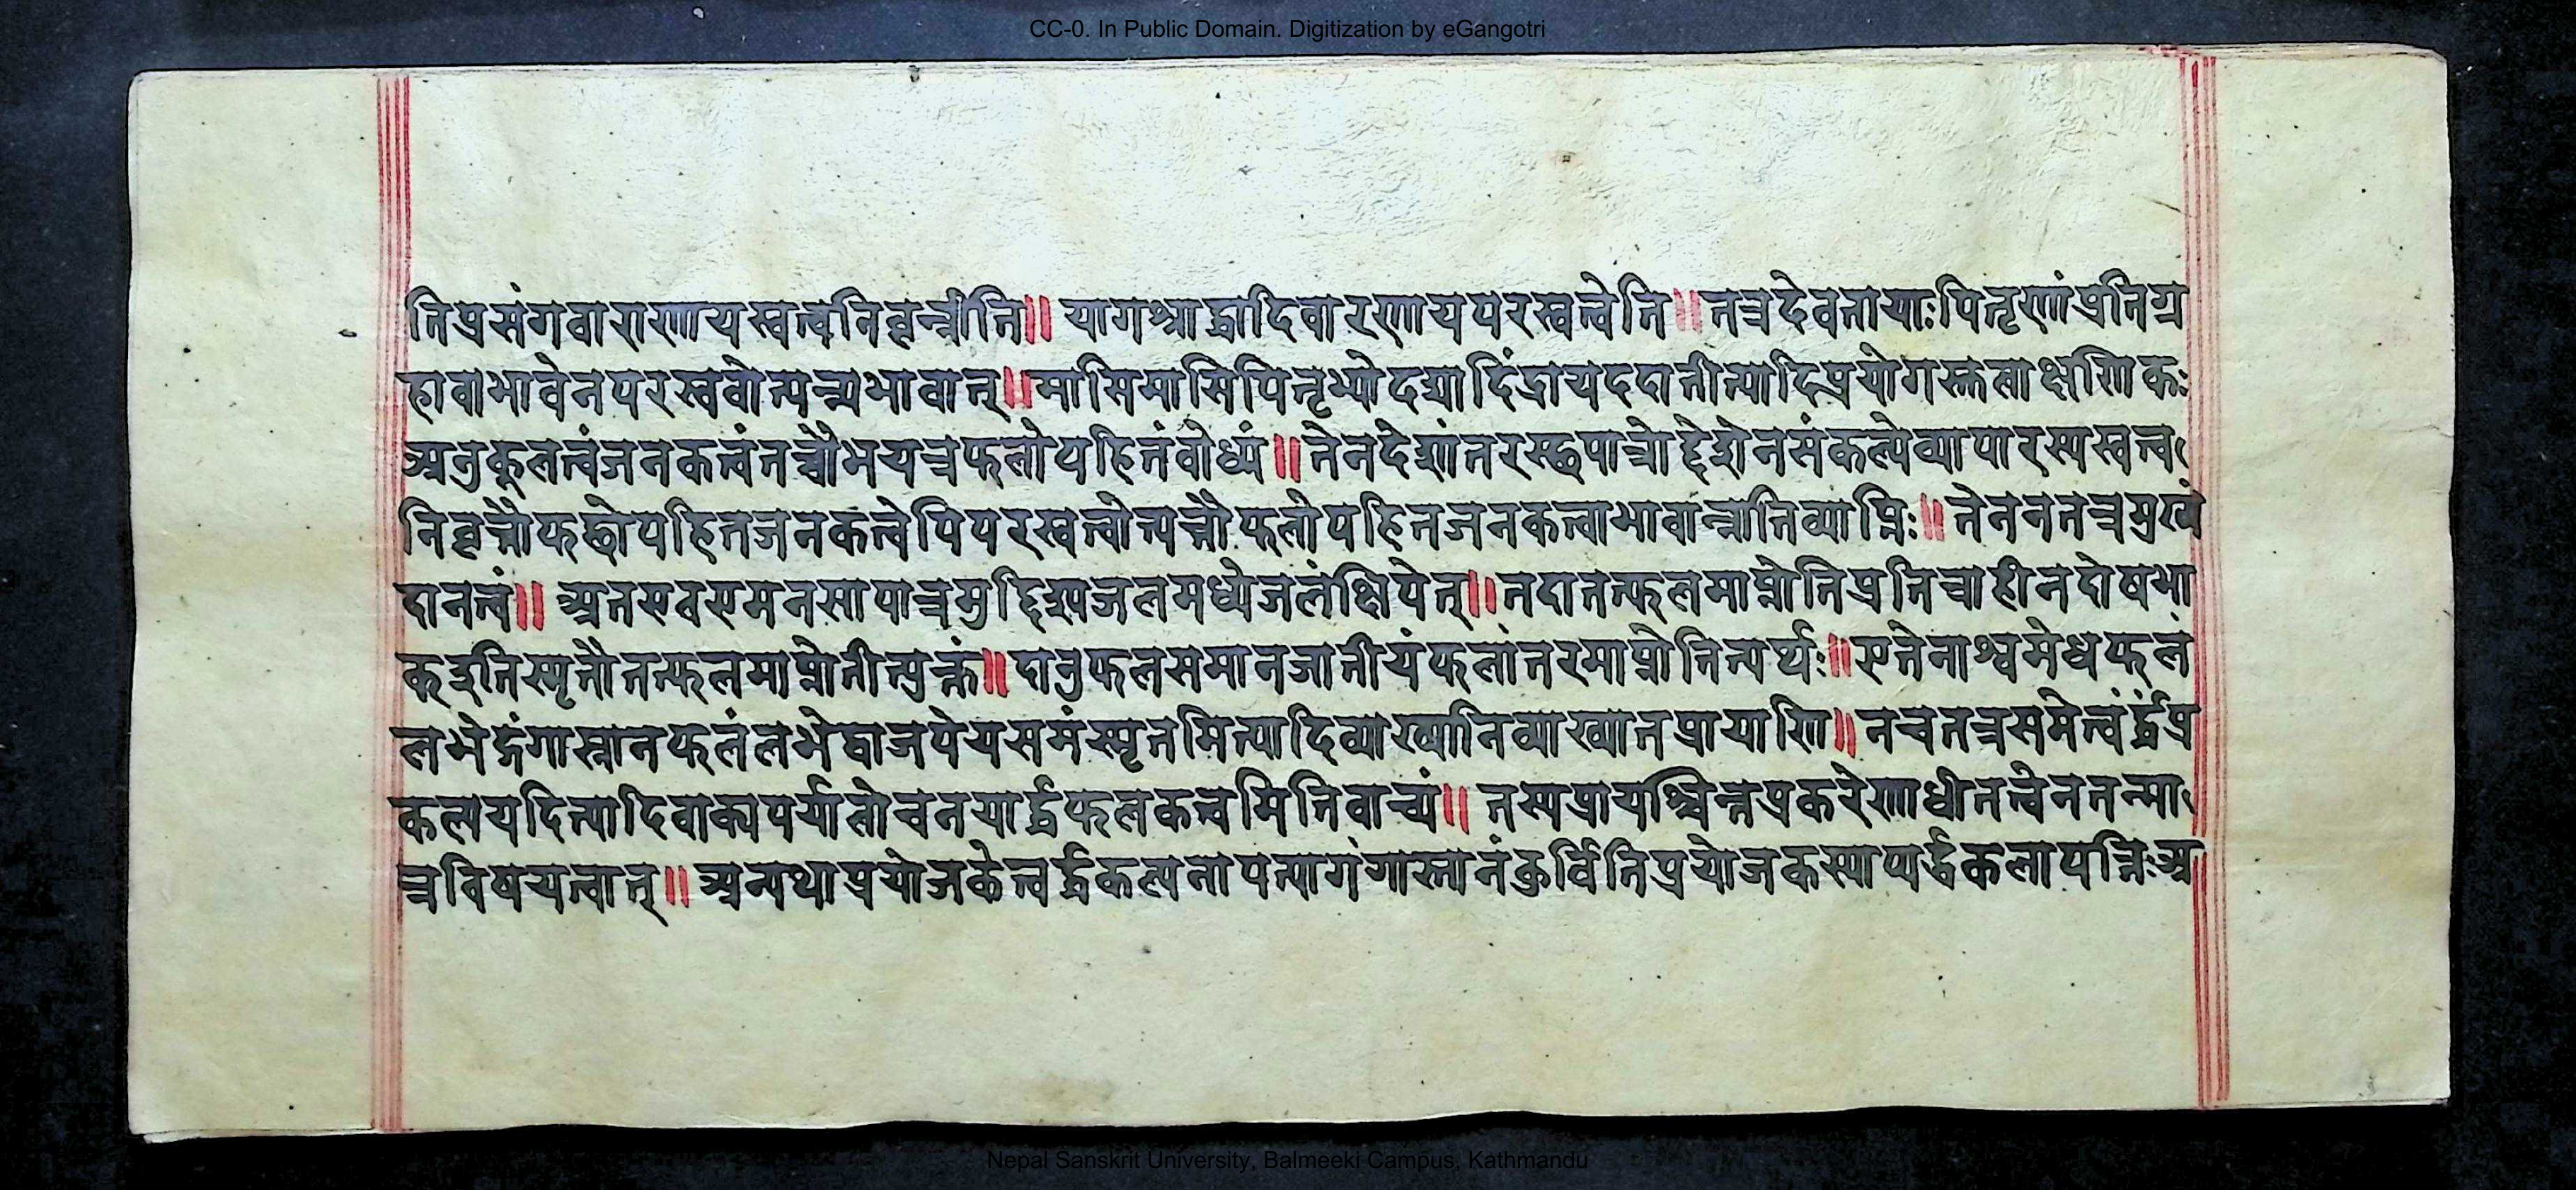 CC-0. In Public Domain. Digitization by eGangotri
तिप्रसंगवाराणायस्वत्वनिवृत्तीति॥ यागश्राद्धादिवारणायपरस्वत्वेति॥तत्रदेवतायाःपितृणांप्रतिग्र
हावाभावेनपरस्ववोत्पत्त्यभावात्॥मासिमासिपितृभ्योदद्यादिंद्रायददातीत्यादिप्रयोगस्तलाक्षणिकः
अनुकूलत्वंजनकत्वंतच्चोभयत्रफलोपहितंवोध्यं॥तेनदेशांतरस्छपात्रोद्देशेनसंकल्पेव्यापारस्यस्वत्व
निवृत्तौफलोपहितजनकत्वेपिपरस्वत्वोत्पत्तौफलोपहितजनकत्वाभावान्नातिव्याप्तिः॥तेनतनत्रमुख्यं
दानत्वं॥ अतएवएमनसापात्रमुद्दिश्यजलमध्येजलंक्षिपेत्॥नदातत्फलमाप्नोतिप्रतिग्राहीनदोषभा
कइतिस्मृतौतत्फलमाप्नोतीत्युक्तं॥दातुफलसमानजातीयंफलांतरमाप्नोतित्यर्थः॥एतेनाश्वमेधफलं
लभेद्गंगास्नानफलंलभेद्वाजपेयसमंस्मृतमित्यादिव्याख्यानिव्याख्यातप्रायाणि॥नचतत्रसमेत्वंर्द्धंप्र
कल्पयदित्यादिवाक्यपर्यालोचनयार्द्धफलकत्वमितिवाच्यं॥ तस्यप्रायश्चित्तप्रकरेणाधीतत्वेनतन्मा
त्रविषयत्वात्॥अन्यथाप्रयोजकेत्वर्द्धकल्पनापत्यागंगास्नानंकुर्वितिप्रयोजकस्याप्यर्द्धकलापत्तिःअ
Nepal Sanskrit University, Balmeeki Campus, Kathmandu